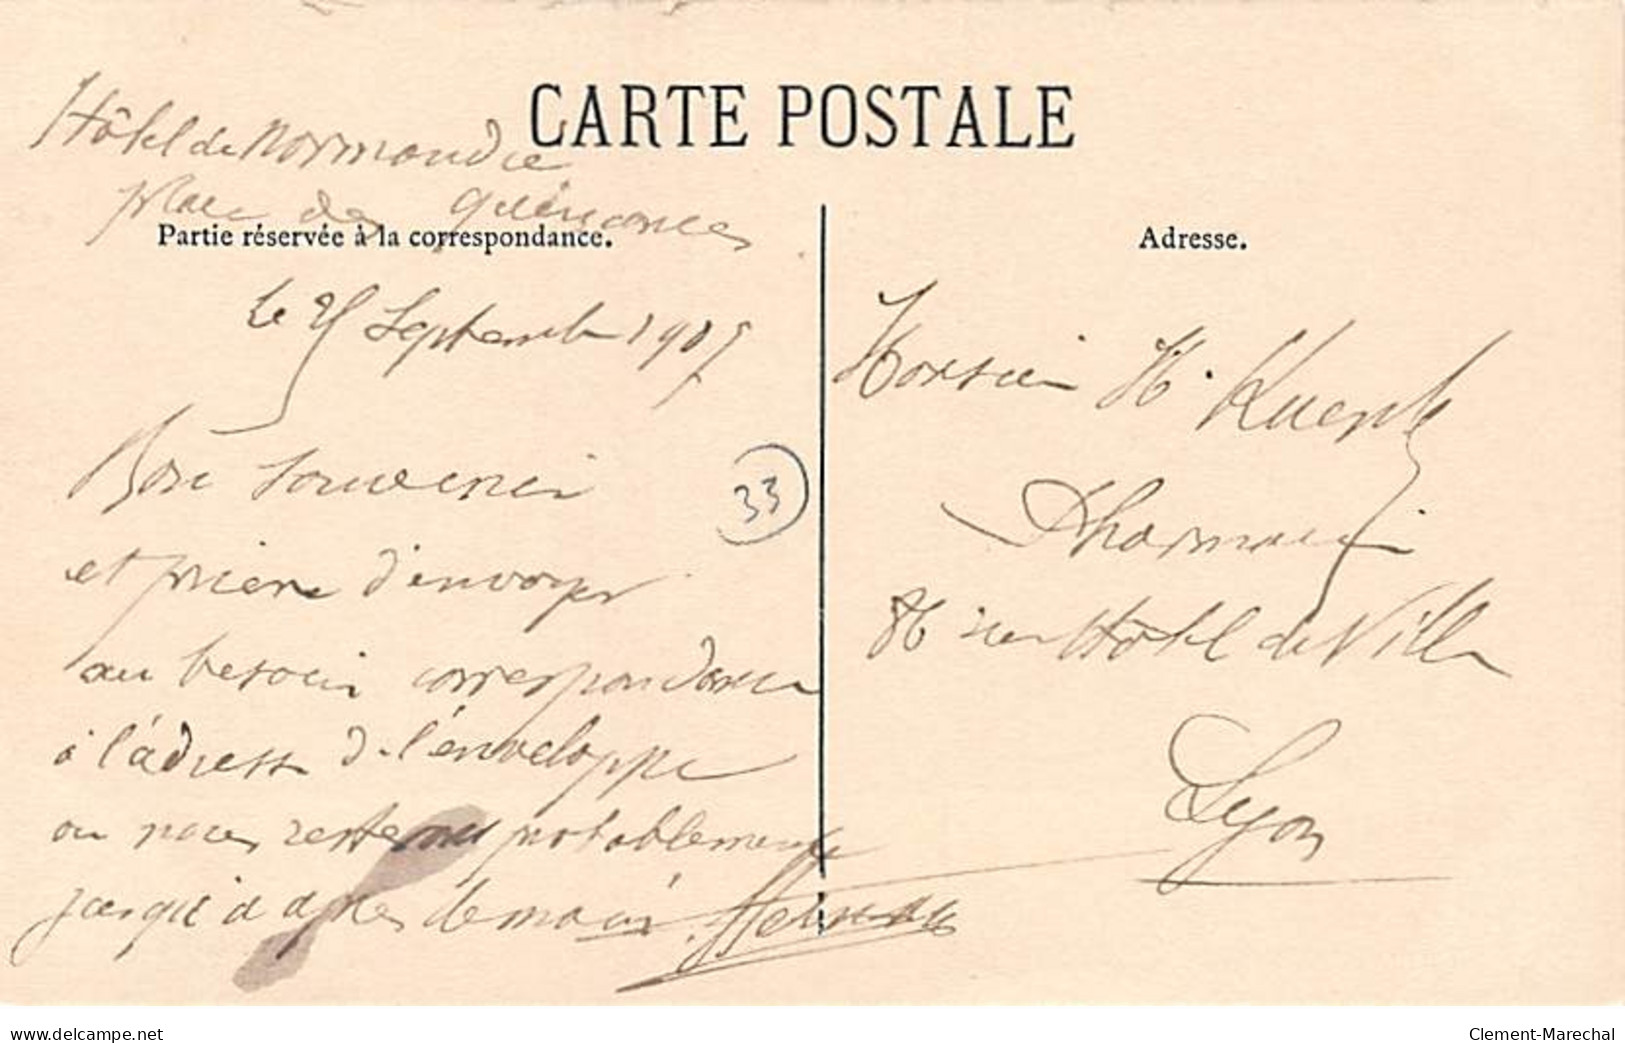 CARTE POSTALE
Hôtel de Normandie
place des Quinconces
Partie réservée à la correspondance.
le 25 Septembre 1907
Bon souvenir
et prière d'envoyer
au besoin correspondance
à l'adresse de l'enveloppe
ou nous resterons probablement
jusqu'à après demain.
33
Adresse.
Monsieur H.
Pharmacien
86 rue Hôtel de Ville
Lyon
www.delcampe.net
Clement-Marechal